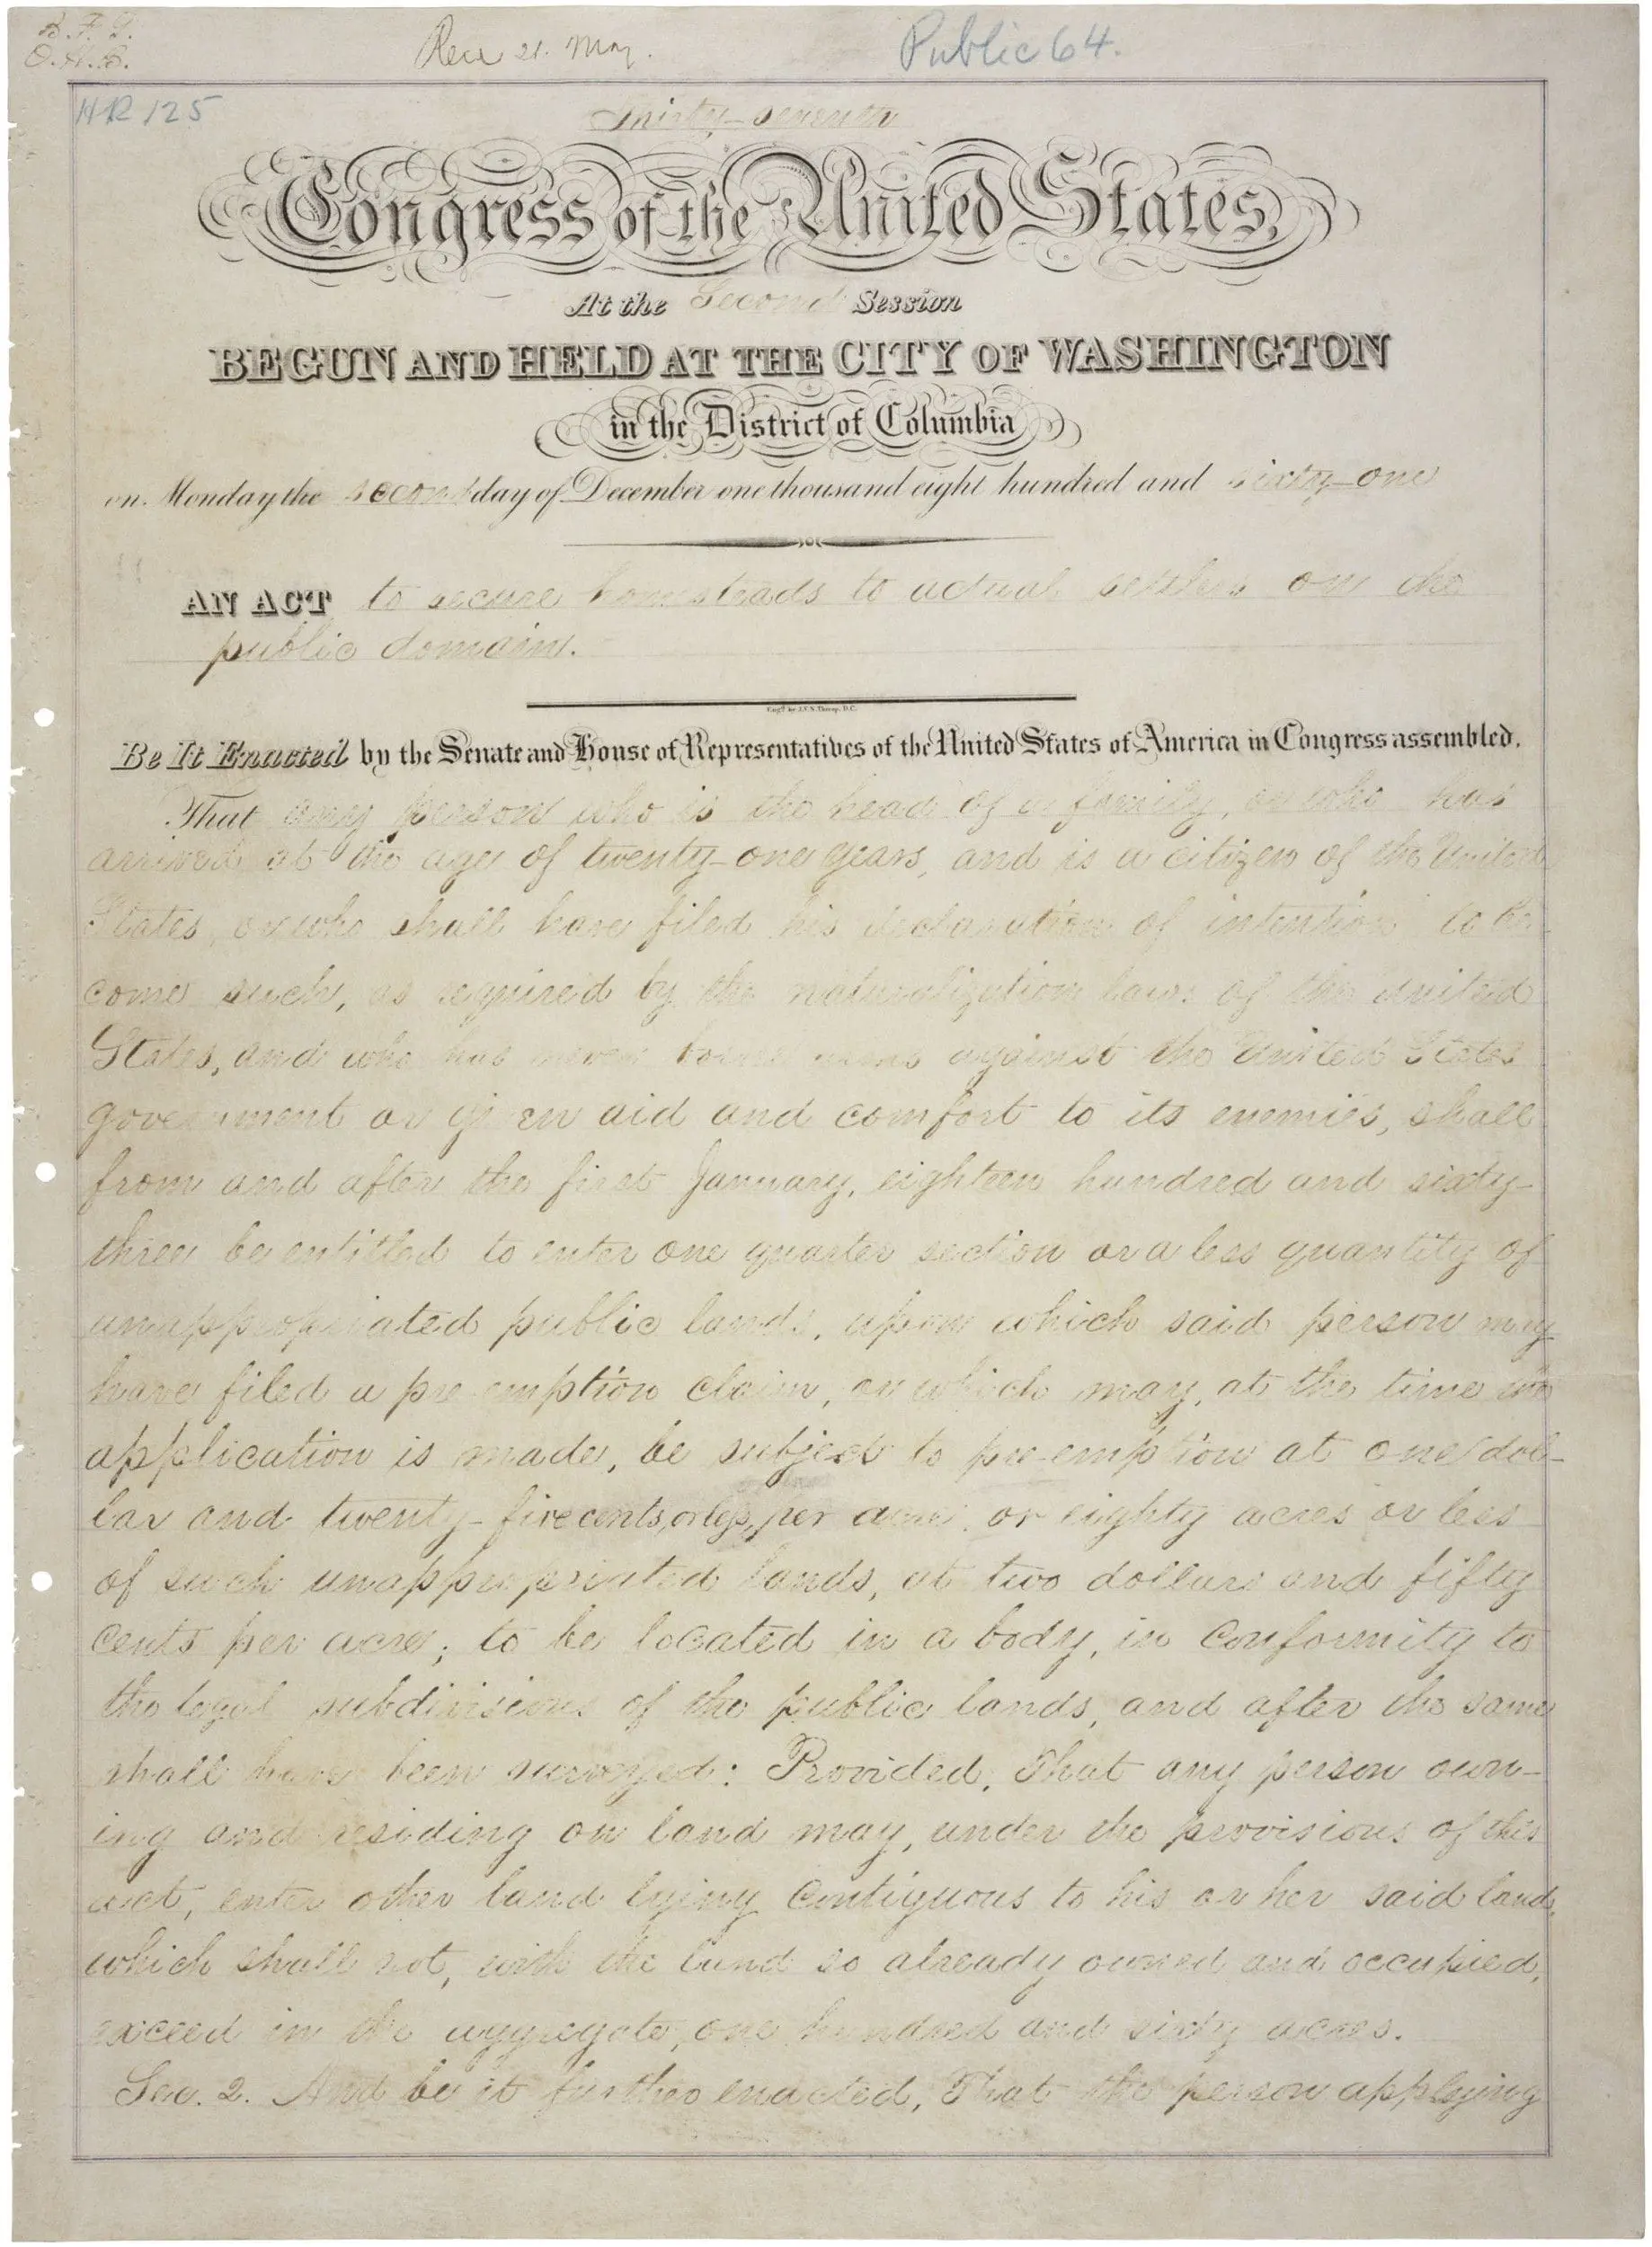 B. F. J.
O. H. B.
Rec 21. May.
Public 64.
HR 125
Thirty-seventh
Congress of the United States,
At the Second Session
BEGUN AND HELD AT THE CITY OF WASHINGTON
in the District of Columbia
on Monday the second day of December one thousand eight hundred and sixty-one
AN ACT to secure homesteads to actual settlers on the
public domain.
Be It Enacted by the Senate and House of Representatives of the United States of America in Congress assembled,
That any person who is the head of a family, or who has
arrived at the age of twenty-one years, and is a citizen of the United
States, or who shall have filed his declaration of intention to be-
come such, as required by the naturalization laws of the United
States, and who has never borne arms against the United States
government or given aid and comfort to its enemies, shall
from and after the first January, eighteen hundred and sixty-
three be entitled to enter one quarter section or a less quantity of
unappropriated public lands, upon which said person may
have filed a pre emption claim, or which may, at the time the
application is made, be subject to pre-emption at one dol-
lar and twenty-five cents, or less, per acre; or eighty acres or less
of such unappropriated lands, at two dollars and fifty
cents per acre; to be located in a body, in conformity to
the legal subdivisions of the public lands, and after the same
shall have been surveyed: Provided, That any person own-
ing and residing on land may, under the provisions of this
act, enter other land lying contiguous to his or her said land,
which shall not, with the land so already owned and occupied,
exceed in the aggregate one hundred and sixty acres.
Sec. 2. And be it further enacted, That the person applying